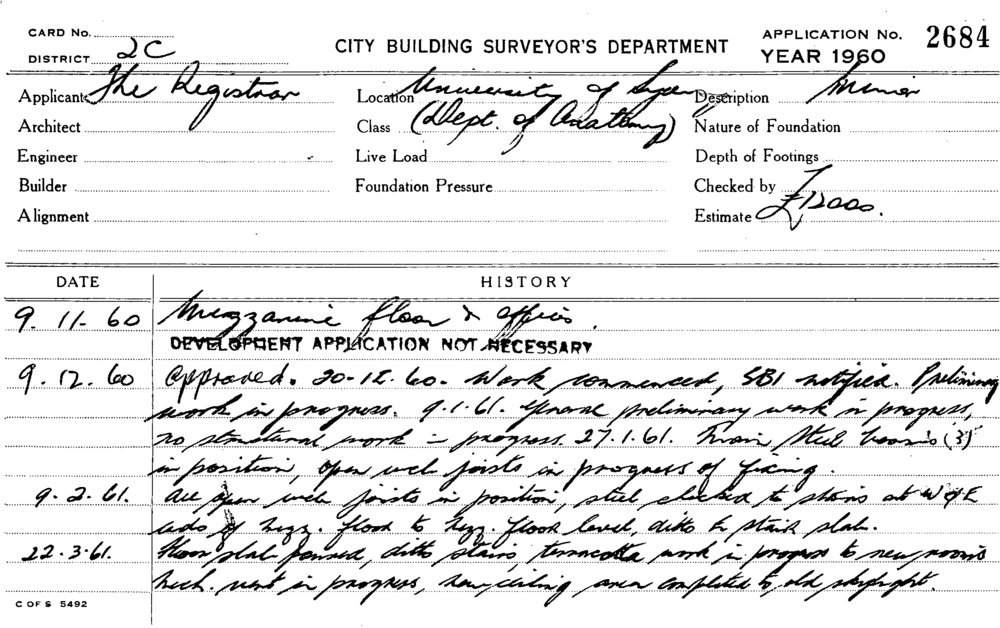 CARD No.
DISTRICT 2C
CITY BUILDING SURVEYOR'S DEPARTMENT
APPLICATION No. 2684
YEAR 1960
Applicant The Registrar
Location University of Sydney
Description Minor
Architect
Class (Dept. of Anatomy)
Nature of Foundation
Engineer
Live Load
Depth of Footings
Builder
Foundation Pressure
Checked by
Alignment
Estimate £12000.
DATE HISTORY
9. 11. 60 Mezzanine floor & offices.
DEVELOPMENT APPLICATION NOT NECESSARY
9. 12. 60 Approved. 20-12. 60. Work commenced, SBI notified. Preliminary
work in progress. 9.1.61. General preliminary work in progress,
no structural work in progress. 27.1.61. Main steel beams (3)
in position, open web joists in progress of fixing.
9. 2. 61. All open web joists in position, steel checked to stairs at W & E
ends of mezz. floor to mezz. floor level, ditto to stair slab.
22. 3. 61. Floor slab poured, ditto stairs, terracotta work in progress to new rooms
mech. vent in progress, new ceiling area completed to old skylight.
C OF S 5492